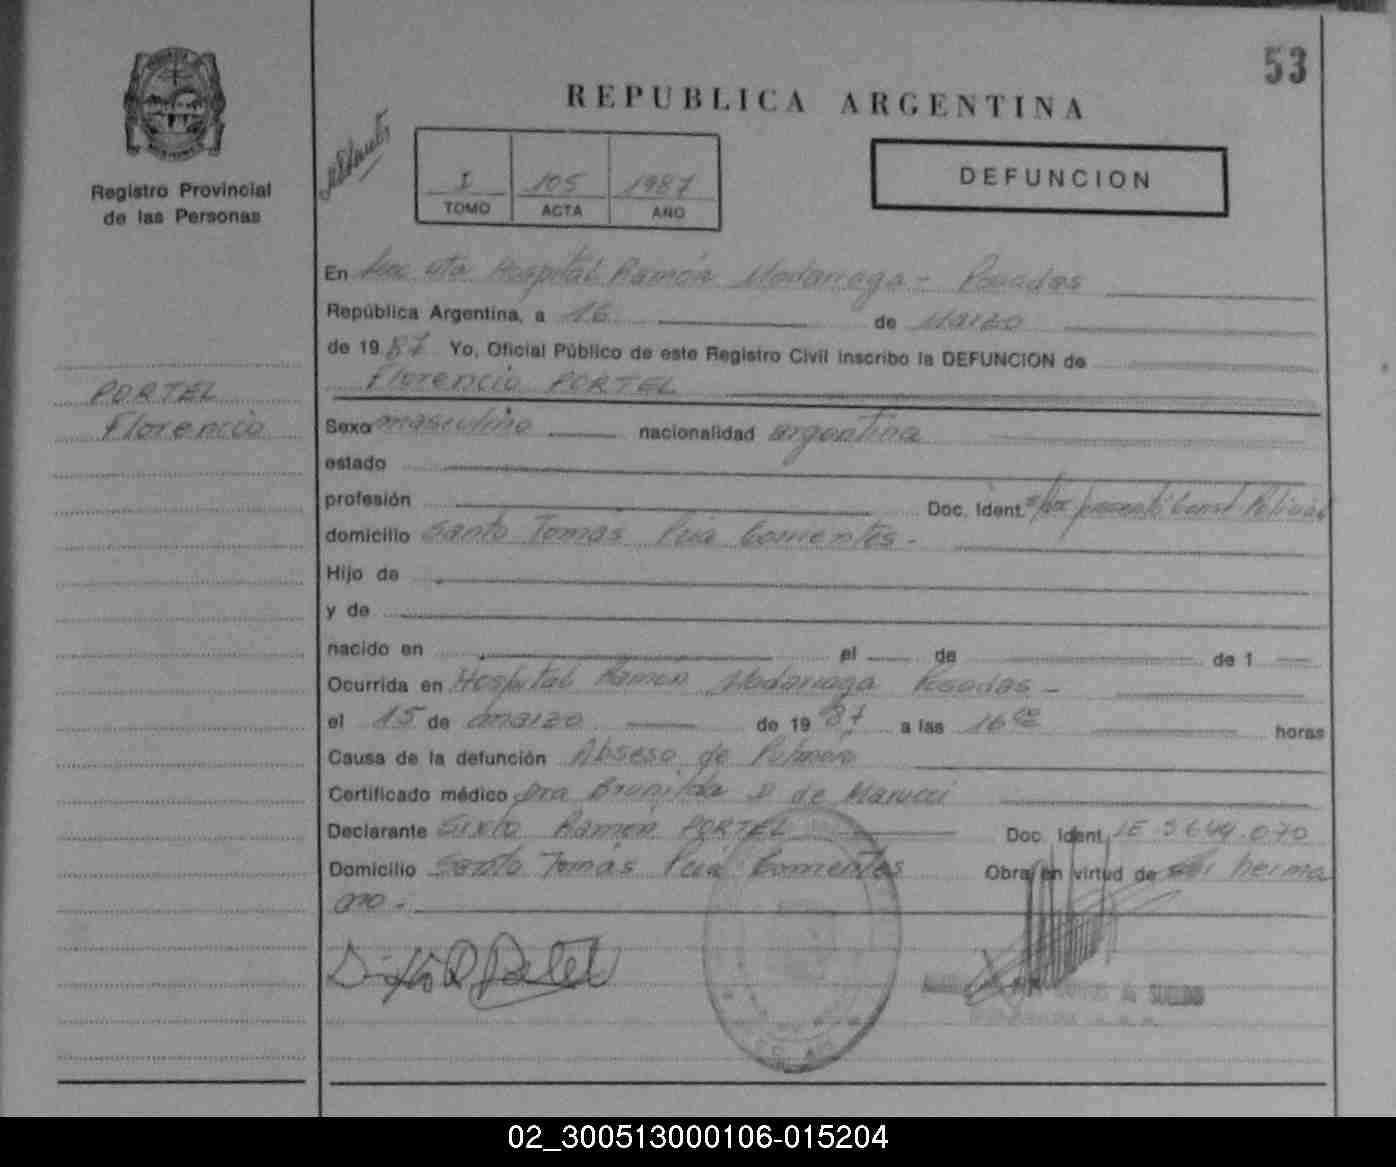 53
REPUBLICA ARGENTINA
Registro Provincial
de las Personas
I 105 1987
TOMO ACTA AÑO
DEFUNCION
En Hospital Ramón Madariaga - Posadas
República Argentina, a 16 de Marzo
de 1987 Yo, Oficial Público de este Registro Civil inscribo la DEFUNCION de
Florencio PORTEL
PORTEL
Florencio
Sexo masculino nacionalidad argentina
estado
profesión Doc. Ident. no presentó Const Policial
domicilio Santo Tomás Pcia Corrientes -
Hijo de
y de
nacido en el de de 1
Ocurrida en Hospital Ramon Madariaga Posadas -
el 15 de marzo de 1987 a las 16 horas
Causa de la defunción Abseso de Pulmon
Certificado médico Dra Brunilda D de Marucci
Declarante Sixto Ramon PORTEL Doc. Ident. LE 5.644.070
Domicilio Santo Tomás Pcia Corrientes Obra en virtud de ser herma
no -
SUELDO
02_300513000106-015204